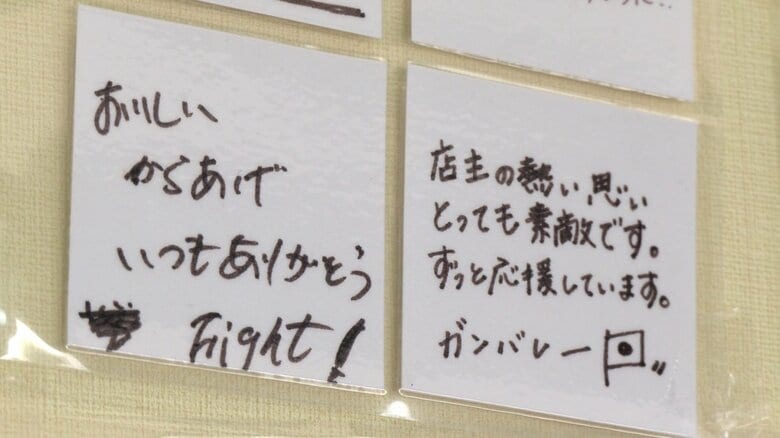 おいしい
からあげ
いつもありがとう
Fight!
店主の熱い思い
とっても素敵です。
ずっと応援しています。
ガンバレー